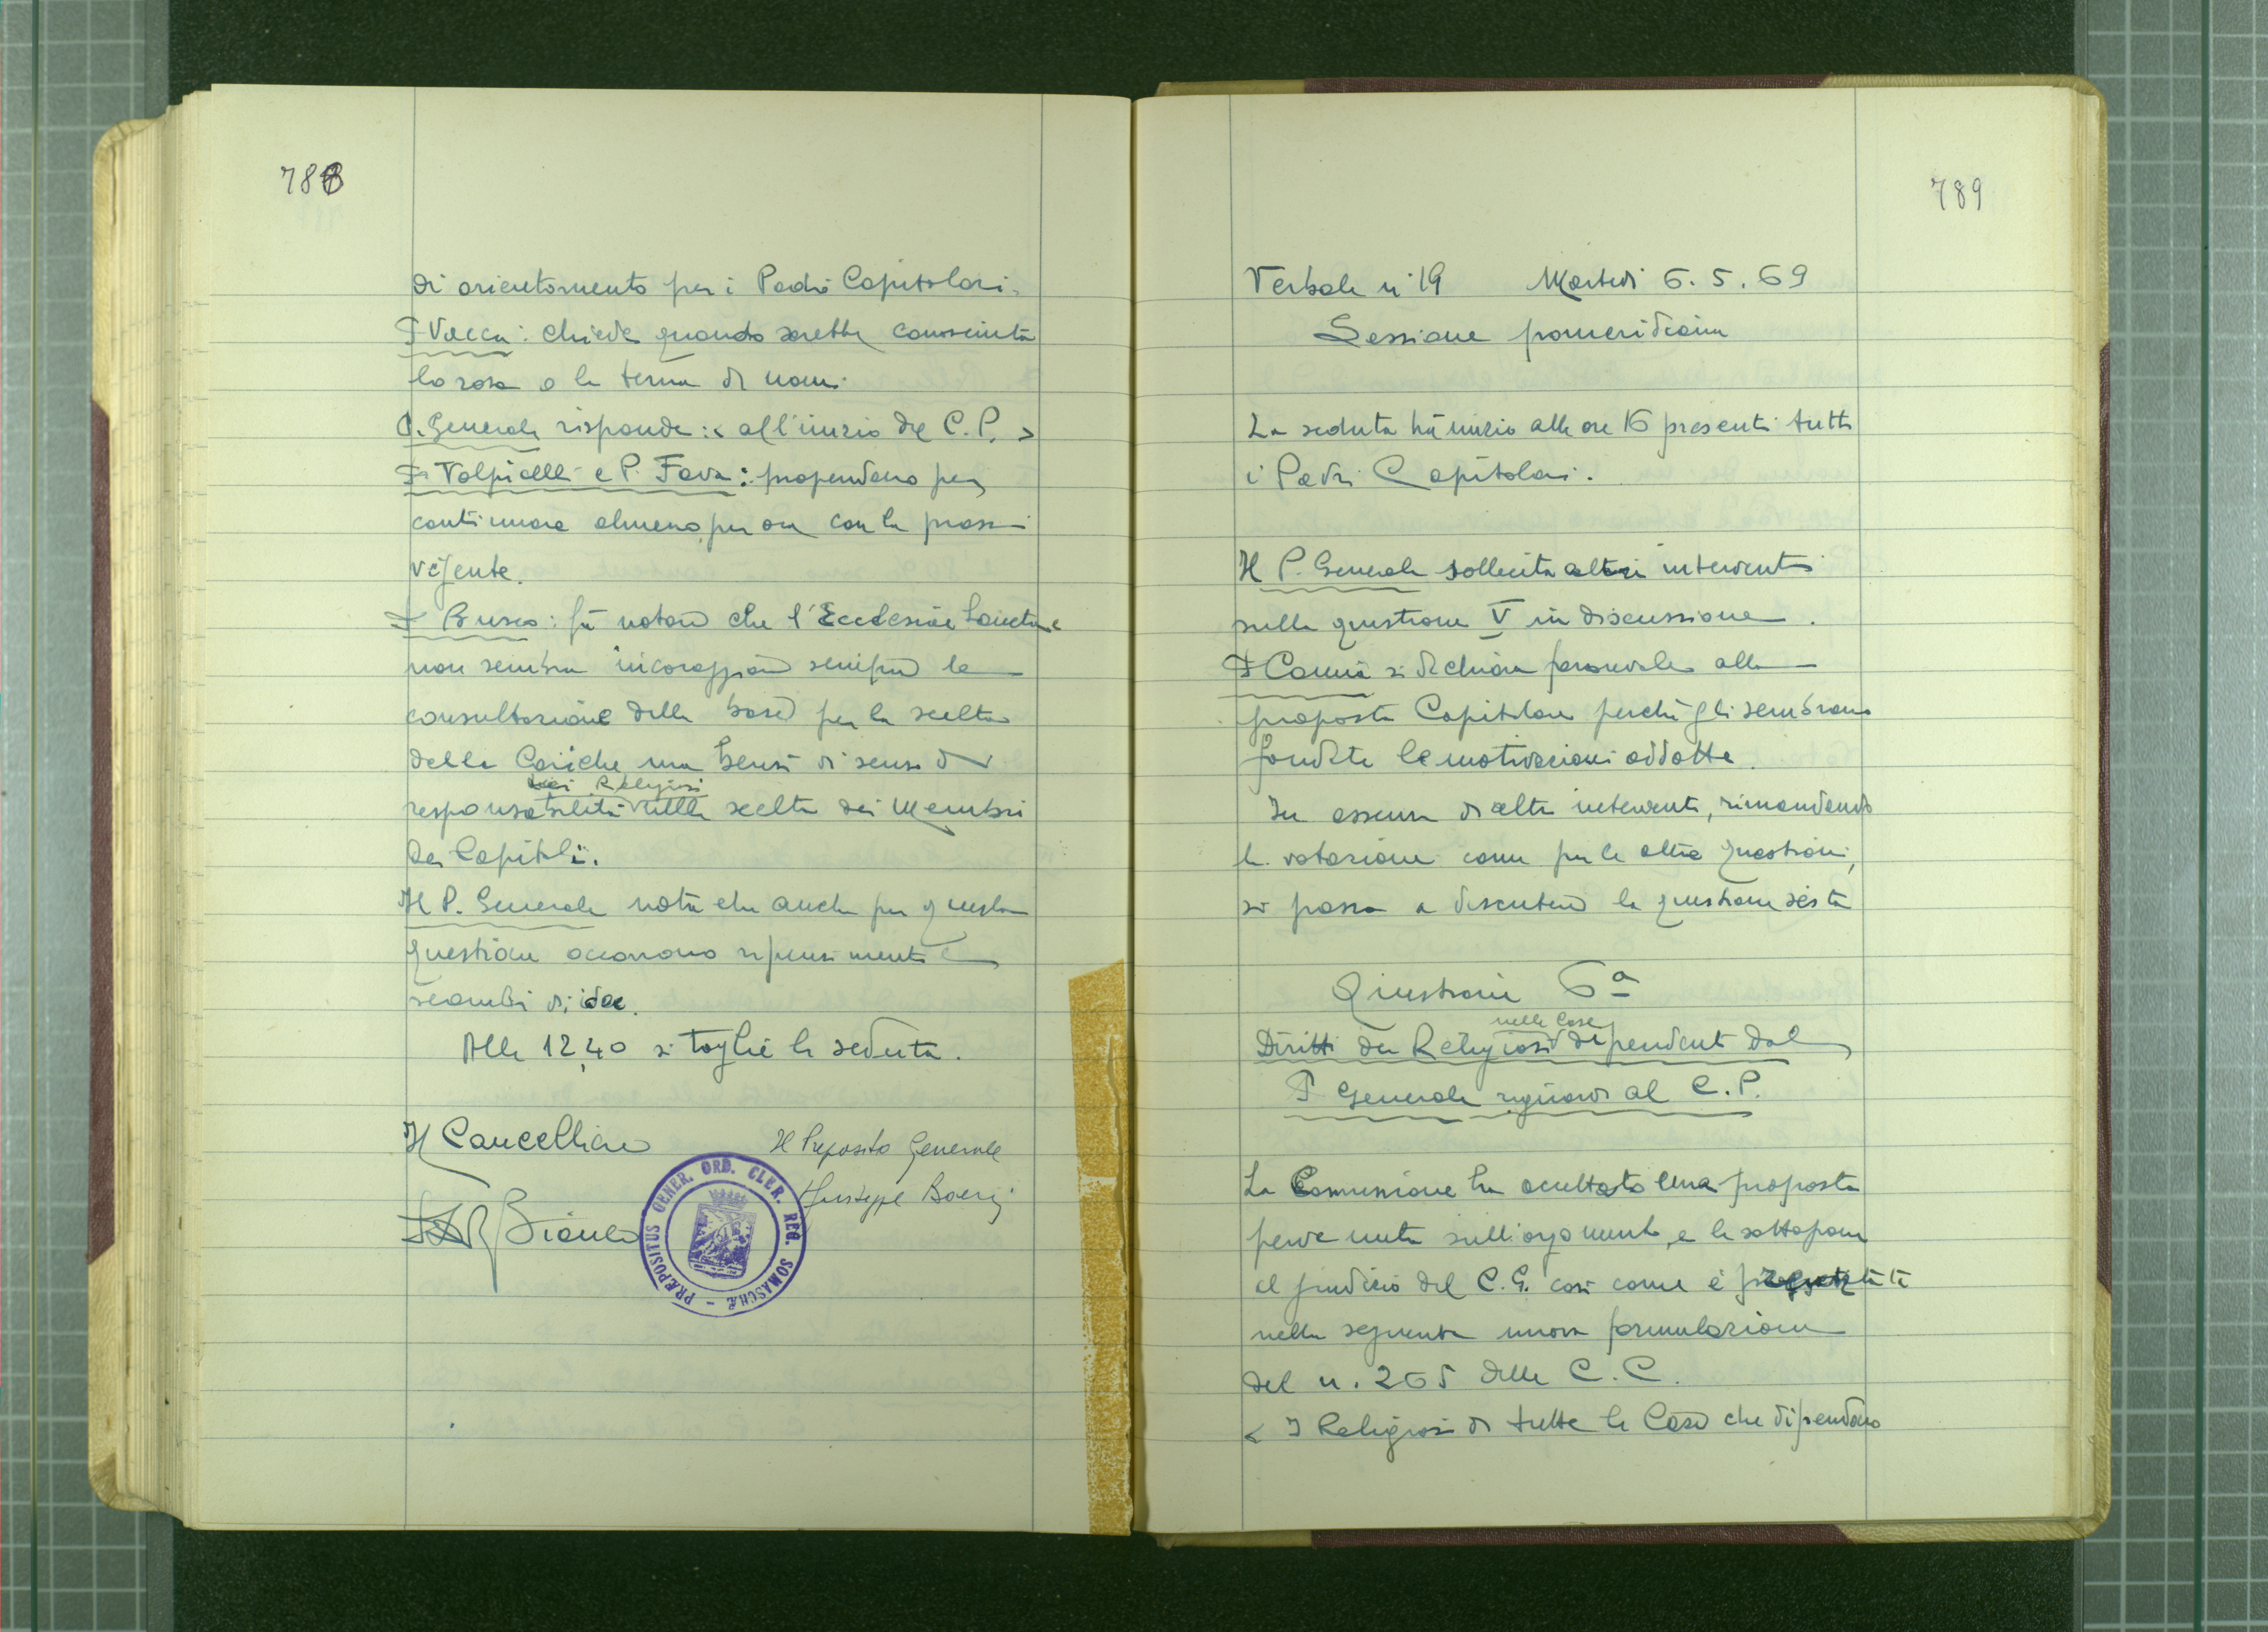 788
di orientamento per i Padri Capitolari.
P Vacca: chiede quando sarebbe conosciuta
la rosa o la terna di nomi.
P. Generale risponde: < all'inizio del C.P. >
P. Volpicelli e P. Fava: propendono per
continuare almeno per ora con la prassi
vigente.
P Busco: fa notare che l'Ecclesiae Sanctae
non sembra incoraggiare sempre la
consultazione della base per la scelta
delle Cariche ma bensì di senso di
dei Religiosi
responsabilità nella scelta dei Membri
dei Capitoli.
Il P. Generale nota che anche per questa
questione occorrono ripensimenti e
scambi di idee.
Alle 12,40 si toglie la seduta.
Il Cancelliere
Il Preposito Generale
Giuseppe Boeris
Bianco
PRÆPOSITUS GENER. ORD. CLER. REG. SOMASCHÆ
789
Verbale n° 19 Martedì 6.5.69
Sessione pomeridiana
La seduta ha inizio alle ore 16 presenti tutti
i Padri Capitolari.
Il P. Generale sollecita altri interventi
sulla questione V in discussione.
P si dichiara favorevole alla
proposta Capitolare perché gli sembrano
fondate le motivazioni addotte.
In assenza di altri interventi, rimandando
la votazione come per le altre questioni,
si passa a discutere la questione sesta
Questione 6ª
nelle Case
Diritti dei Religiosi dipendenti dal
P Generale riguardo al C.P.
La Comissione ha accettato una proposta
pervenuta sull'argomento, e la sottopone
al giudizio del C.G. così come è
nella seguente nuova formulazione
del n. 265 delle C.C.
< I Religiosi di tutte le Case che dipendono